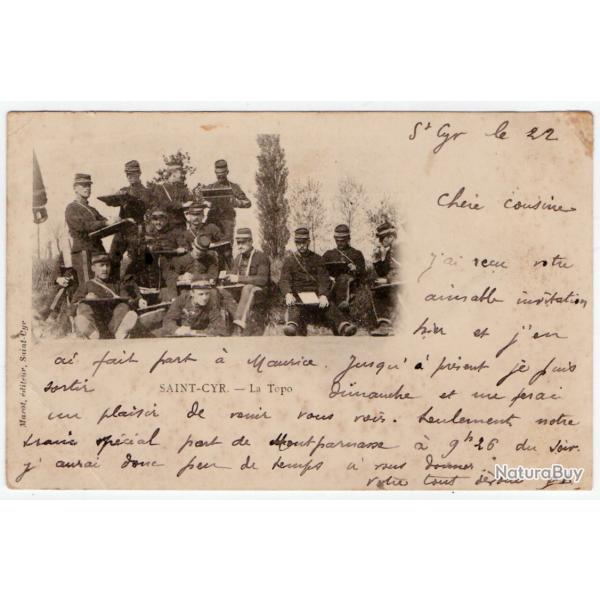 St Cyr le 22
Chère cousine
j'ai recu votre
aimable invitation
hier et j'en
ai fait part à Maurice. Jusqu'à présent je puis
sortir dimanche et me ferai
un plaisir de venir vous voir. Seulement notre
train spécial part de Montparnasse à 9h26 du soir.
j'aurai donc peu de temps à vous donner.
votre tout dévoué
SAINT-CYR. — La Topo
Marot, éditeur, Saint-Cyr
NaturaBuy